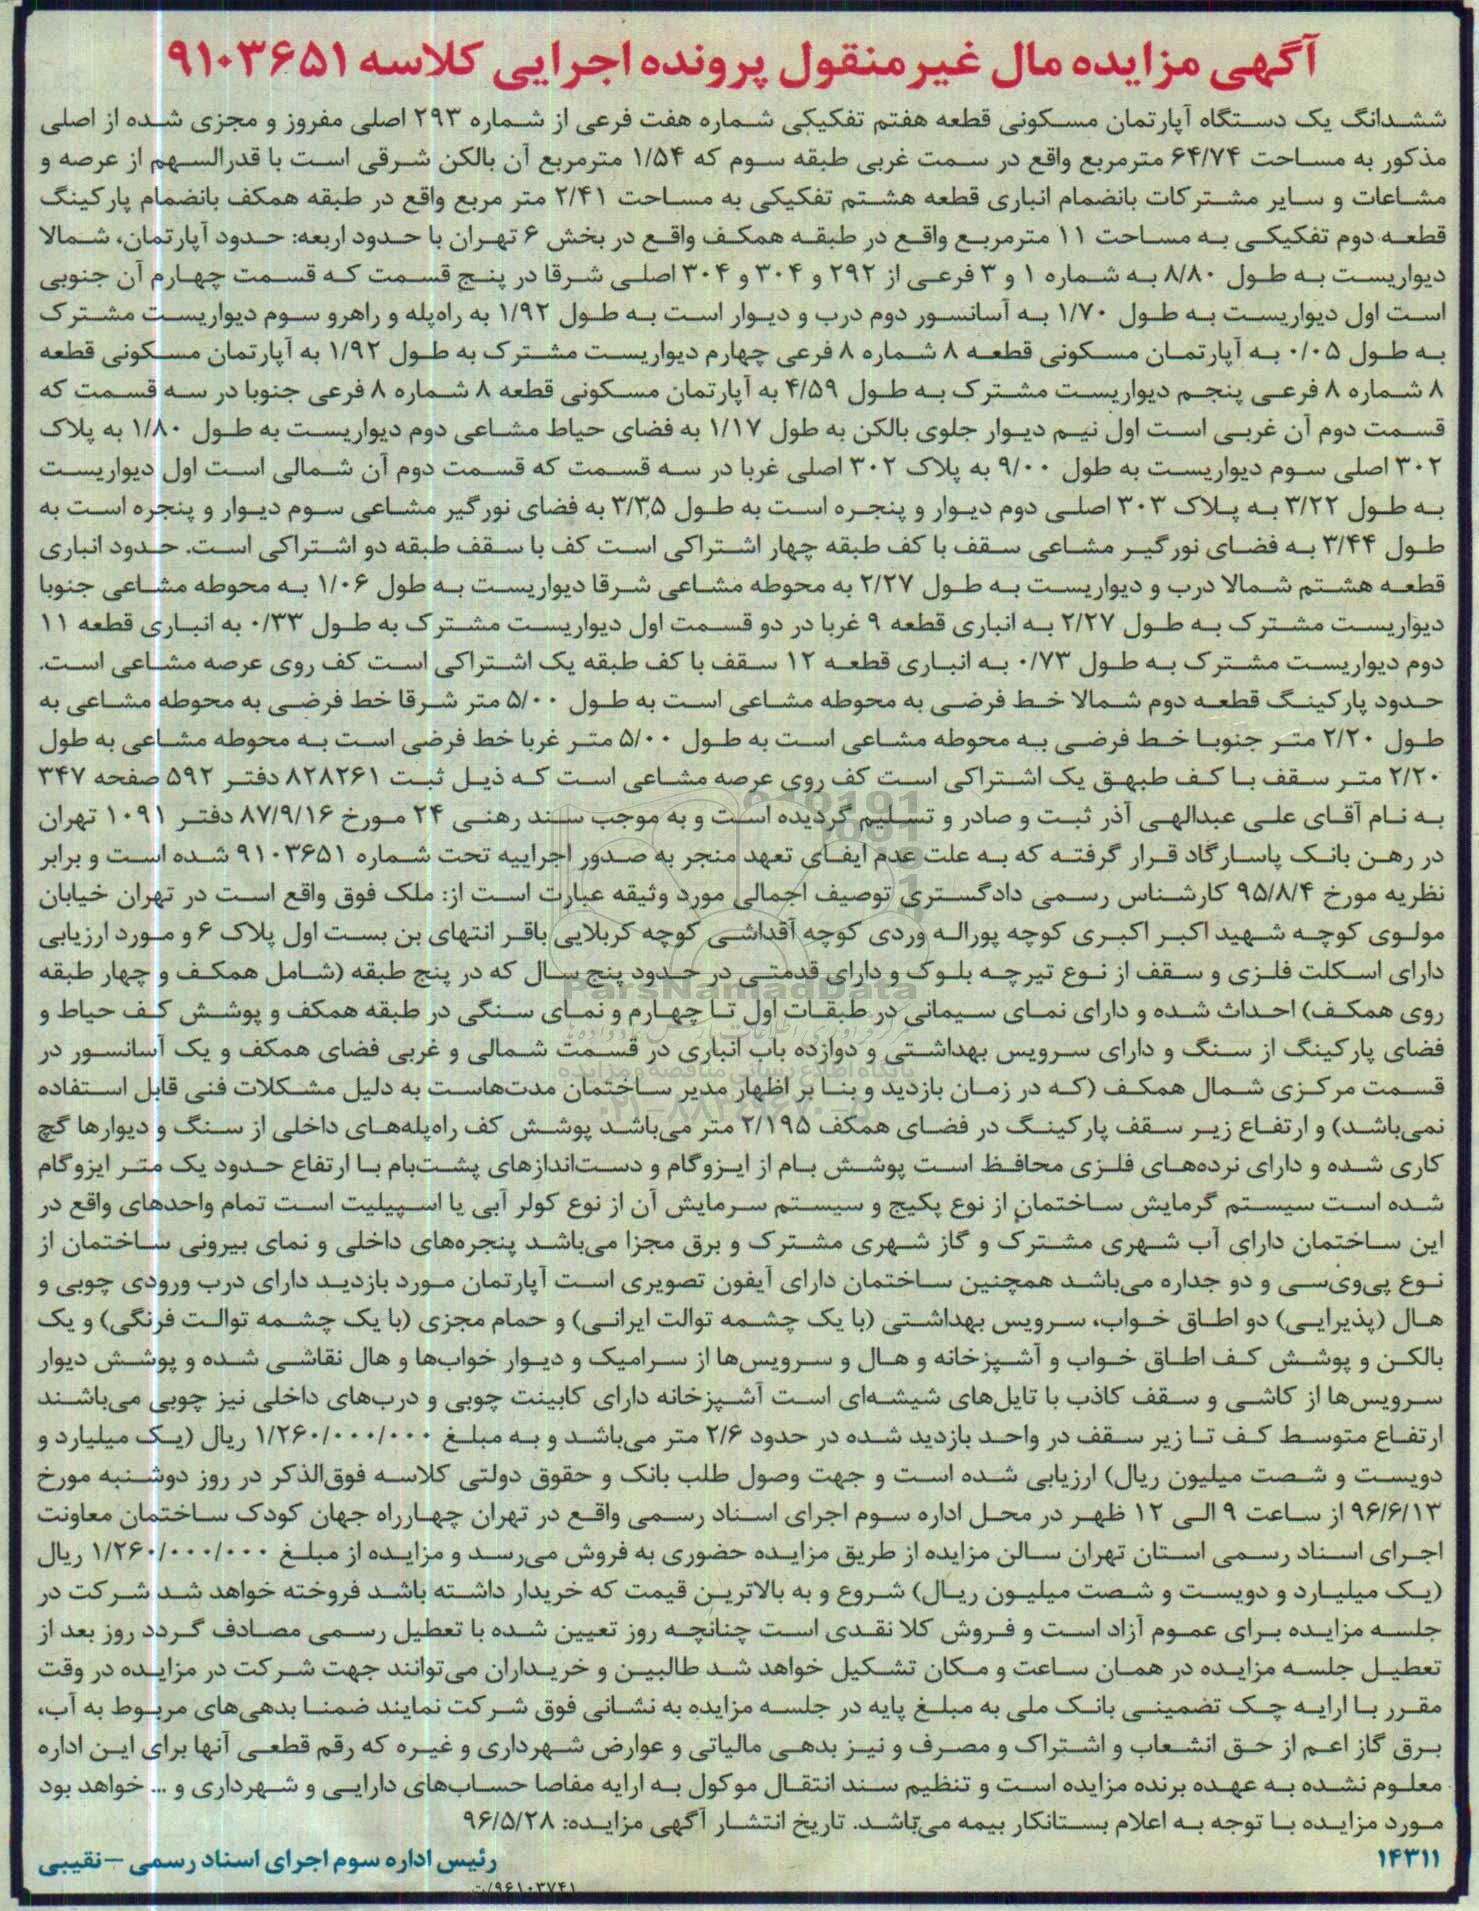 آگهی مزایده مال غیرمنقول پرونده اجرایی کلاسه ۹۱۰۳۶۵۱
ششدانگ یک دستگاه آپارتمان مسکونی قطعه هفتم تفکیکی شماره هفت فرعی از شماره ۲۹۳ اصلی مفروز و مجزی شده از اصلی
مذکور به مساحت ۶۴/۷۴ مترمربع واقع در سمت غربی طبقه سوم که ۱/۵۴ مترمربع آن بالکن شرقی است با قدرالسهم از عرصه و
مشاعات و سایر مشترکات بانضمام انباری قطعه هشتم تفکیکی به مساحت ۲/۴۱ متر مربع واقع در طبقه همکف بانضمام پارکینگ
قطعه دوم تفکیکی به مساحت ۱۱ مترمربع واقع در طبقه همکف واقع در بخش ۶ تهران با حدود اربعه: حدود آپارتمان، شمالا
دیواریست به طول ۸/۸۰ به شماره ۱ و ۳ فرعی از ۲۹۲ و ۳۰۴ و ۳۰۴ اصلی شرقا در پنج قسمت که قسمت چهارم آن جنوبی
است اول دیواریست به طول ۱/۷۰ به آسانسور دوم درب و دیوار است به طول ۱/۹۲ به راه‌پله و راهرو سوم دیواریست مشترک
به طول ۰/۰۵ به آپارتمان مسکونی قطعه ۸ شماره ۸ فرعی چهارم دیواریست مشترک به طول ۱/۹۲ به آپارتمان مسکونی قطعه
۸ شماره ۸ فرعی پنجم دیواریست مشترک به طول ۴/۵۹ به آپارتمان مسکونی قطعه ۸ شماره ۸ فرعی جنوبا در سه قسمت که
قسمت دوم آن غربی است اول نیم دیوار جلوی بالکن به طول ۱/۱۷ به فضای حیاط مشاعی دوم دیواریست به طول ۱/۸۰ به پلاک
۳۰۲ اصلی سوم دیواریست به طول ۹/۰۰ به پلاک ۳۰۲ اصلی غربا در سه قسمت که قسمت دوم آن شمالی است اول دیواریست
به طول ۳/۲۲ به پلاک ۳۰۳ اصلی دوم دیوار و پنجره است به طول ۳/۳۵ به فضای نورگیر مشاعی سوم دیوار و پنجره است به
طول ۳/۴۴ به فضای نورگیر مشاعی سقف با کف طبقه چهار اشتراکی است کف با سقف طبقه دو اشتراکی است. حدود انباری
قطعه هشتم شمالا درب و دیواریست به طول ۲/۲۷ به محوطه مشاعی شرقا دیواریست به طول ۱/۰۶ به محوطه مشاعی جنوبا
دیواریست مشترک به طول ۲/۲۷ به انباری قطعه ۹ غربا در دو قسمت اول دیواریست مشترک به طول ۰/۳۳ به انباری قطعه ۱۱
دوم دیواریست مشترک به طول ۰/۷۳ به انباری قطعه ۱۲ سقف با کف طبقه یک اشتراکی است کف روی عرصه مشاعی است.
حدود پارکینگ قطعه دوم شمالا خط فرضی به محوطه مشاعی است به طول ۵/۰۰ متر شرقا خط فرضی به محوطه مشاعی به
طول ۲/۲۰ متر جنوبا خط فرضی به محوطه مشاعی است به طول ۵/۰۰ متر غربا خط فرضی است به محوطه مشاعی به طول
۲/۲۰ متر سقف با کف طبهق یک اشتراکی است کف روی عرصه مشاعی است که ذیل ثبت ۸۲۸۲۶۱ دفتر ۵۹۲ صفحه ۳۴۷
به نام آقای علی عبدالهی آذر ثبت و صادر و تسلیم گردیده است و به موجب سند رهنی ۲۴ مورخ ۸۷/۹/۱۶ دفتر ۱۰۹۱ تهران
در رهن بانک پاسارگاد قرار گرفته که به علت عدم ایفای تعهد منجر به صدور اجراییه تحت شماره ۹۱۰۳۶۵۱ شده است و برابر
نظریه مورخ ۹۵/۸/۴ کارشناس رسمی دادگستری توصیف اجمالی مورد وثیقه عبارت است از: ملک فوق واقع است در تهران خیابان
مولوی کوچه شهید اکبر اکبری کوچه پوراله وردی کوچه آقداشی کوچه کربلایی باقر انتهای بن بست اول پلاک ۶ و مورد ارزیابی
دارای اسکلت فلزی و سقف از نوع تیرچه بلوک و دارای قدمتی در حدود پنج سال که در پنج طبقه (شامل همکف و چهار طبقه
روی همکف) احداث شده و دارای نمای سیمانی در طبقات اول تا چهارم و نمای سنگی در طبقه همکف و پوشش کف حیاط و
فضای پارکینگ از سنگ و دارای سرویس بهداشتی و دوازده باب انباری در قسمت شمالی و غربی فضای همکف و یک آسانسور در
قسمت مرکزی شمال همکف (که در زمان بازدید و بنا بر اظهار مدیر ساختمان مدت‌هاست به دلیل مشکلات فنی قابل استفاده
نمی‌باشد) و ارتفاع زیر سقف پارکینگ در فضای همکف ۲/۱۹۵ متر می‌باشد پوشش کف راه‌پله‌های داخلی از سنگ و دیوارها گچ
کاری شده و دارای نرده‌های فلزی محافظ است پوشش بام از ایزوگام و دست‌اندازهای پشت‌بام با ارتفاع حدود یک متر ایزوگام
شده است سیستم گرمایش ساختمان از نوع پکیج و سیستم سرمایش آن از نوع کولر آبی یا اسپیلیت است تمام واحدهای واقع در
این ساختمان دارای آب شهری مشترک و گاز شهری مشترک و برق مجزا می‌باشد پنجره‌های داخلی و نمای بیرونی ساختمان از
نوع پی‌وی‌سی و دو جداره می‌باشد همچنین ساختمان دارای آیفون تصویری است آپارتمان مورد بازدید دارای درب ورودی چوبی و
هال (پذیرایی) دو اطاق خواب، سرویس بهداشتی (با یک چشمه توالت ایرانی) و حمام مجزی (با یک چشمه توالت فرنگی) و یک
بالکن و پوشش کف اطاق خواب و آشپزخانه و هال و سرویس‌ها از سرامیک و دیوار خواب‌ها و هال نقاشی شده و پوشش دیوار
سرویس‌ها از کاشی و سقف کاذب با تایل‌های شیشه‌ای است آشپزخانه دارای کابینت چوبی و درب‌های داخلی نیز چوبی می‌باشند
ارتفاع متوسط کف تا زیر سقف در واحد بازدید شده در حدود ۲/۶ متر می‌باشد و به مبلغ ۱/۲۶۰/۰۰۰/۰۰۰ ریال (یک میلیارد و
دویست و شصت میلیون ریال) ارزیابی شده است و جهت وصول طلب بانک و حقوق دولتی کلاسه فوق‌الذکر در روز دوشنبه مورخ
۹۶/۶/۱۳ از ساعت ۹ الی ۱۲ ظهر در محل اداره سوم اجرای اسناد رسمی واقع در تهران چهارراه جهان کودک ساختمان معاونت
اجرای اسناد رسمی استان تهران سالن مزایده از طریق مزایده حضوری به فروش می‌رسد و مزایده از مبلغ ۱/۲۶۰/۰۰۰/۰۰۰ ریال
(یک میلیارد و دویست و شصت میلیون ریال) شروع و به بالاترین قیمت که خریدار داشته باشد فروخته خواهد شد شرکت در
جلسه مزایده برای عموم آزاد است و فروش کلا نقدی است چنانچه روز تعیین شده با تعطیل رسمی مصادف گردد روز بعد از
تعطیل جلسه مزایده در همان ساعت و مکان تشکیل خواهد شد طالبین و خریداران می‌توانند جهت شرکت در مزایده در وقت
مقرر با ارایه چک تضمینی بانک ملی به مبلغ پایه در جلسه مزایده به نشانی فوق شرکت نمایند ضمنا بدهی‌های مربوط به آب،
برق گاز اعم از حق انشعاب و اشتراک و مصرف و نیز بدهی مالیاتی و عوارض شهرداری و غیره که رقم قطعی آنها برای این اداره
معلوم نشده به عهده برنده مزایده است و تنظیم سند انتقال موکول به ارایه مفاصا حساب‌های دارایی و شهرداری و ... خواهد بود
مورد مزایده با توجه به اعلام بستانکار بیمه می‌باشد. تاریخ انتشار آگهی مزایده: ۹۶/۵/۲۸
۱۴۳۱۱ رئیس اداره سوم اجرای اسناد رسمی – نقیبی
۹۶۱۰۳۷۴۱/ت
ParsNamadData
پایگاه اطلاع رسانی مناقصه و مزایده